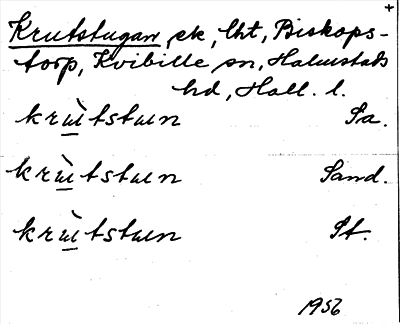 +
Krutstugan, ek, lht, Biskops-
torp, Kvibille sn, Halmstads
hd, Hall. l.
krùtstuen Sa.
krùtstuen Sand.
krùtstuen St.
1956